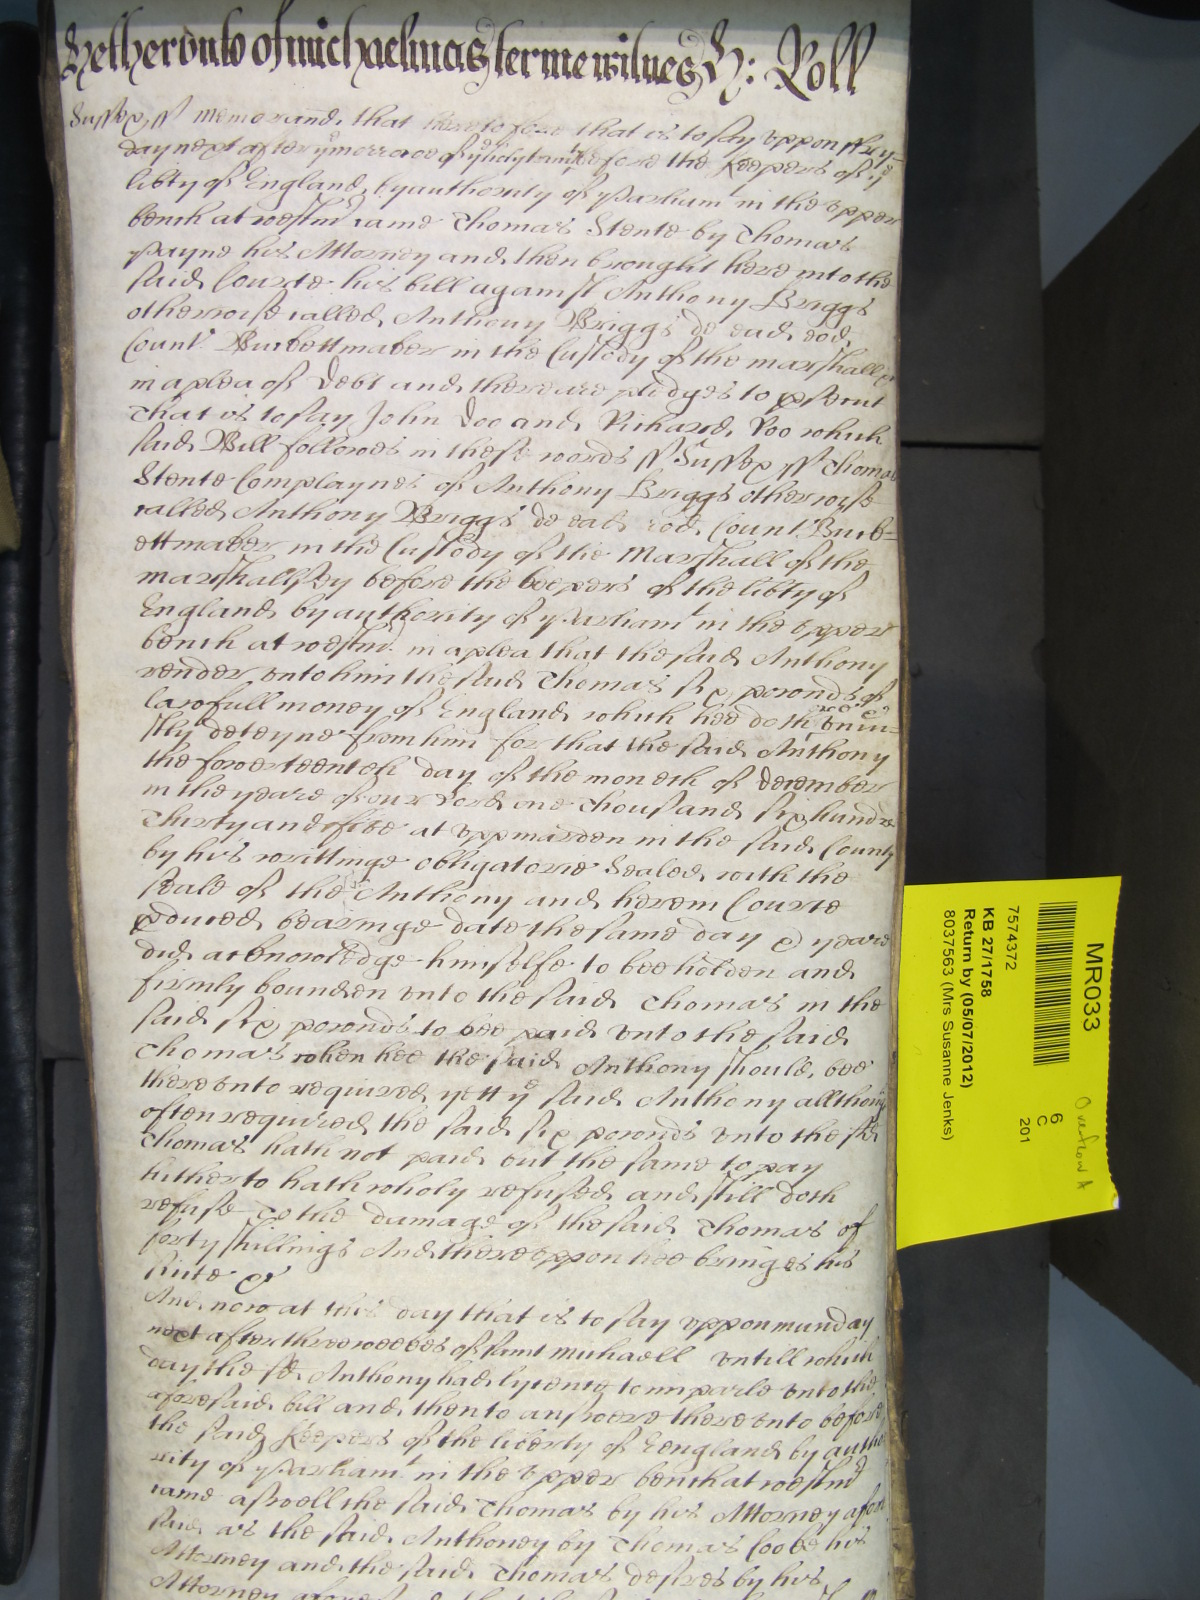 hetherunto of michaelmas terme witnes H: Roll
Sussex ss Memorand that heretofore that is to say uppon ffry=
day next after ye morrowe of ye holy before the Keepers of ye
libty of England by authority of Parliam in the upper
bench at westmr came Thomas Stente by Thomas
Payne his Attorney and then brought here into the
said Courte his bill against Anthony Briggs
otherwise called Anthony Briggs de ead
Count Buckettmaker in the Custody of the marshall &c
in a plea of Debt and there are pledges to psecut
that is to say John Doo and Richard Roo which
said Bill followes in these words ss Sussex ss Thomas
Stente Complaynes of Anthony Briggs otherwise
called Anthony Briggs de ead Count Buck=
ettmaker in the Custody of the Marshall of the
marshallsey before the keepers of the libty of
England by authority of Parliamt in the upper
bench at westmr in a plea that the said Anthony
render unto him the said Thomas six pounds of
lawfull money of England which hee doth oweth & uniu=
stly deteyne from him for that the said Anthony
the fowerteenth day of the moneth of December
in the yeare of our Lord one thousand six hundre
thirty and five at uppmarden in the said County
by his writtinge obligatorie Sealed with the
seale of the sd Anthony and here in Courte
pduced bearinge date the same day & yeare
did acknowledge himselfe to bee holden and
firmly bounden unto the said Thomas in the
said six pounds to bee paid unto the said
Thomas when hee the said Anthony should bee
thereunto required yett ye said Anthony allthoug
often required the said six pounds unto the sd
Thomas hath not paid but the same to pay
hitherto hath wholy refused and still doth
refuse To the damage of the said Thomas of
forty shillings And thereuppon hee bringes his
suite &c
And now at this day that is to say uppon munday
next after three weekes of saint michaell untill which
day the sd Anthony had lycence to imparle unto the
aforesaid bill and then to answere thereunto before
the said Keepers of the liberty of Eengland by autho
rity of Parliamt in the upper bench at westmr
came aswell the said Thomas by his Attorney afore
said as the said Anthoney by Thomas Cooke his
Attorney and the said Thomas desires by his
Attorney aforesaid that the
MR033
7574372
KB 27/1758
Return by (05/07/2012)
8037563 (Mrs Susanne Jenks)
6
C
201
Overflow A